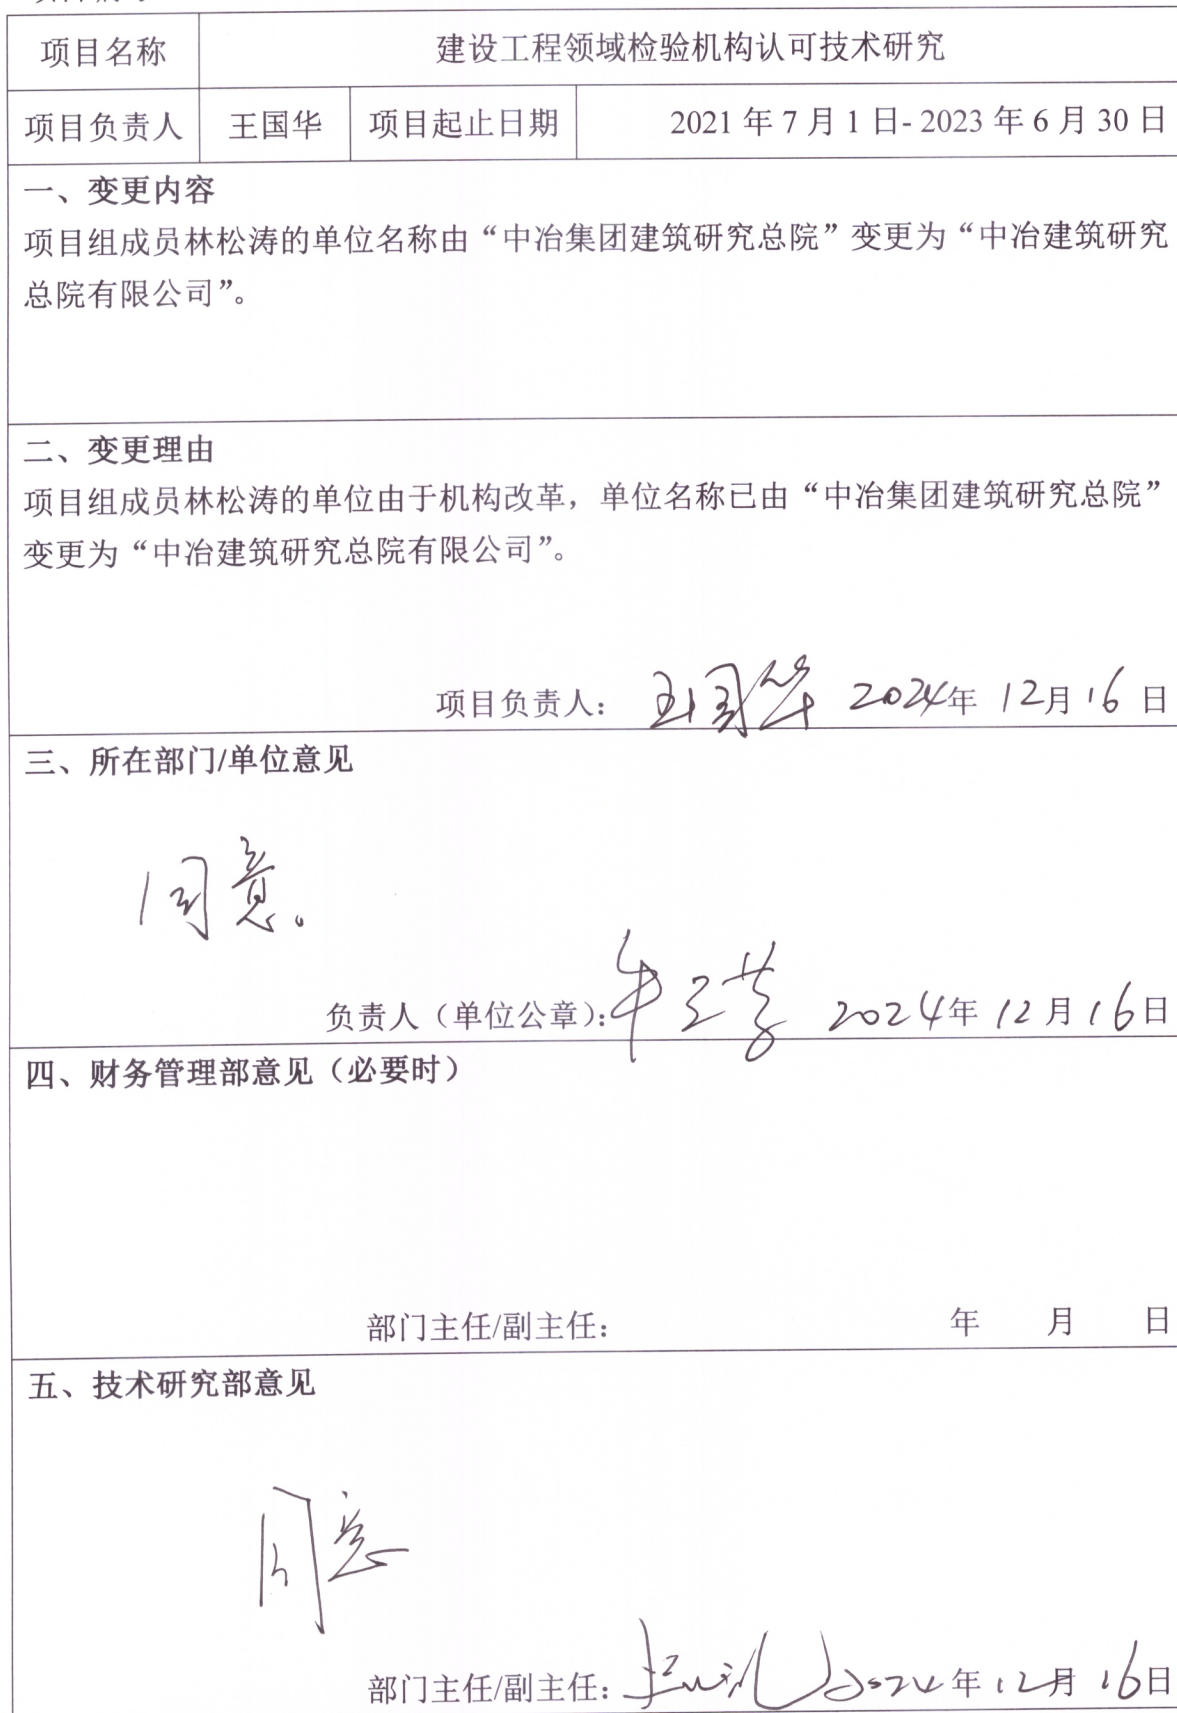 项目名称 建设工程领域检验机构认可技术研究
项目负责人 王国华 项目起止日期 2021 年 7 月 1 日- 2023 年 6 月 30 日
一、变更内容
项目组成员林松涛的单位名称由“中冶集团建筑研究总院”变更为“中冶建筑研究
总院有限公司”。
二、变更理由
项目组成员林松涛的单位由于机构改革，单位名称已由“中冶集团建筑研究总院”
变更为“中冶建筑研究总院有限公司”。
项目负责人： 王国华 2024年 12月 16 日
三、所在部门/单位意见
同意。
负责人（单位公章）： 2024年 12 月 16日
四、财务管理部意见（必要时）
部门主任/副主任： 年 月 日
五、技术研究部意见
同意
部门主任/副主任： 2024 年 12月 16日